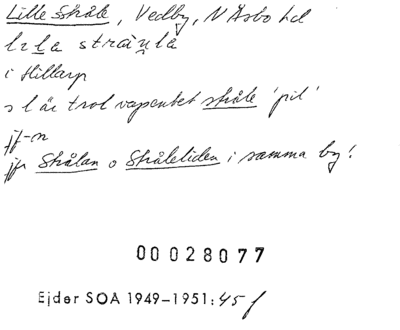 Lille Skråle, Vedby, N Åsbo hd
i Hillarp
s l är trol vapentet stråle 'pil'
jf-n
jfr Strålan o Stråleliden i samma by!
00028077
Ejder SOA 1949-1951:45 f